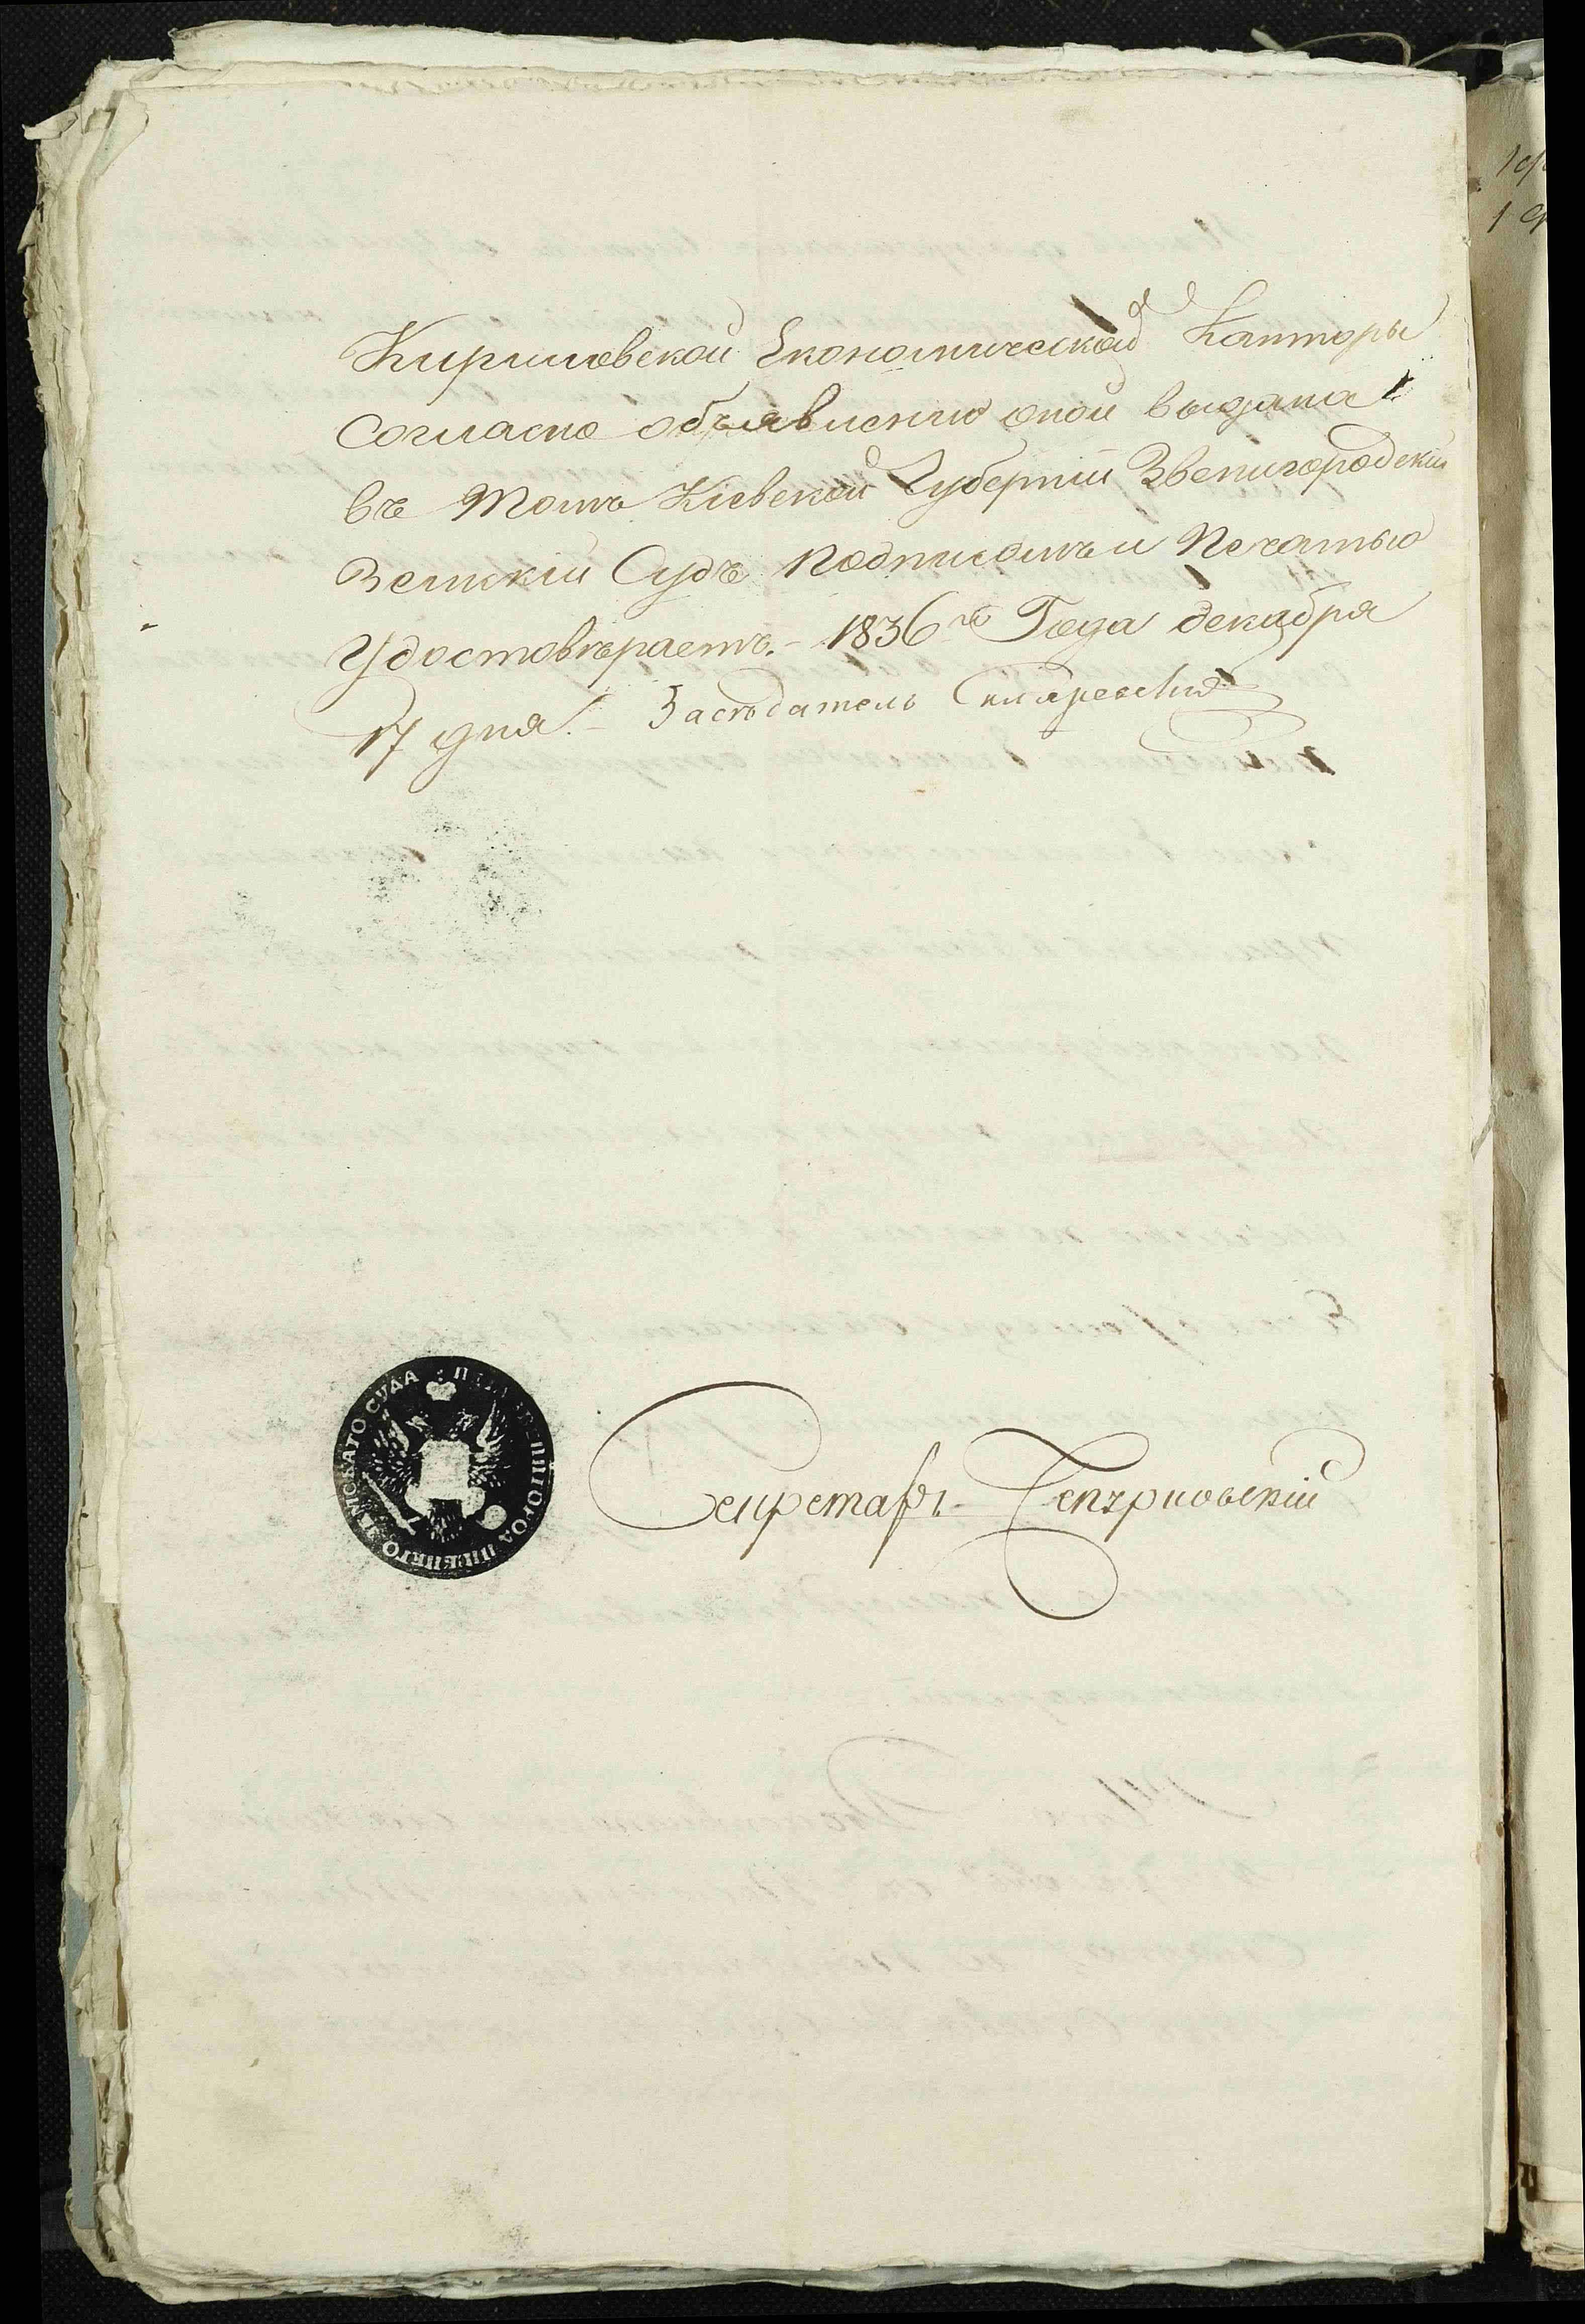 Кириловской Економической Канторы
Согласно объявлению оной выдана
въ томъ Кіевской Губерніи Звенигородскій
Земскій Судъ подписомъ и печатью
Удостовѣряетъ. - 1836го Года декабря
17 дня. - Засѣдатель
Секретарь
ЗЕМСКАГО СУДА